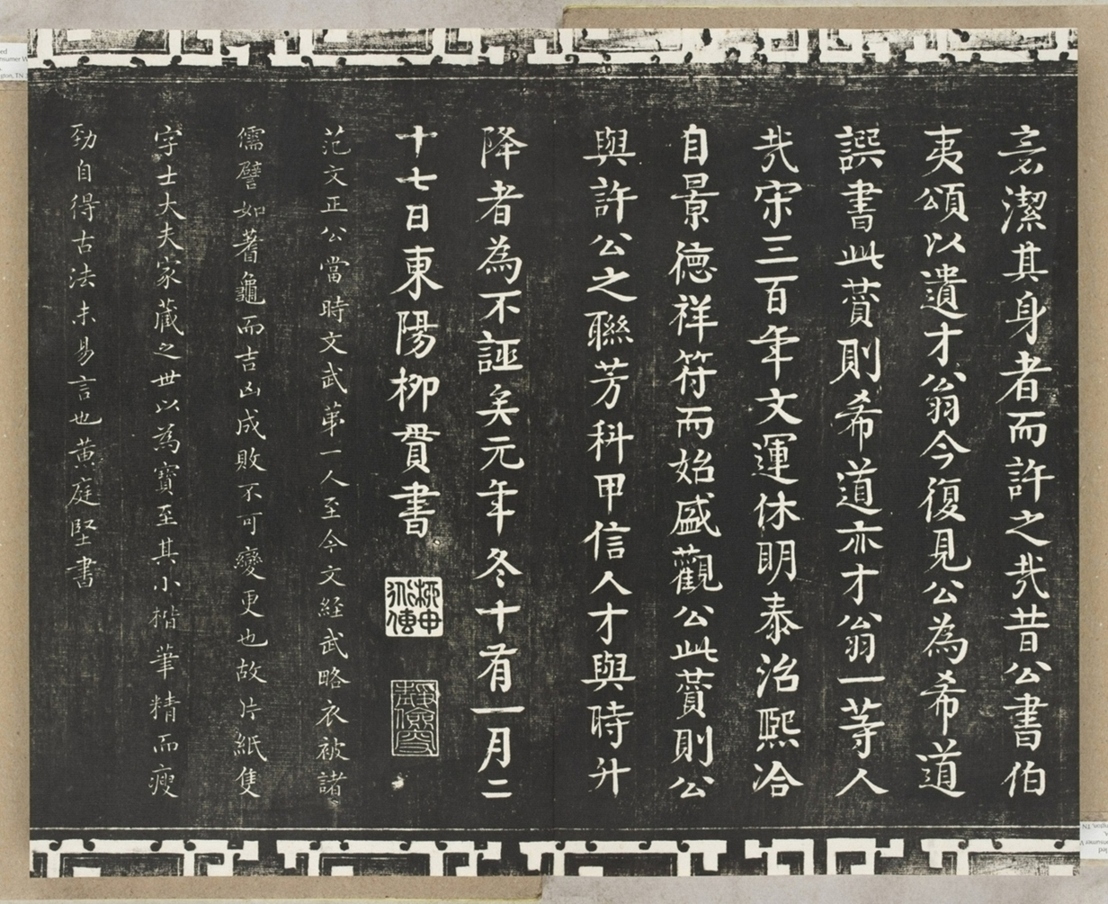 言潔其身者而許之哉昔公書伯
夷頌以遺才翁今復見公為希道
譔書此贊則希道亦才翁一等人
哉宋三百年文運休明泰治熙洽
自景德祥符而始盛觀公此贊則公
與許公之聯芳科甲信人才與時升
降者為不誣矣元年冬十有一月二
十七日東陽柳貫書
范文正公當時文武第一人至今文経武略衣被諸
儒譬如蓍龜而吉凶成敗不可變更也故片紙隻
字士大夫家藏之世以為寶至其小楷筆精而瘦
勁自得古法未易言也黃庭堅書